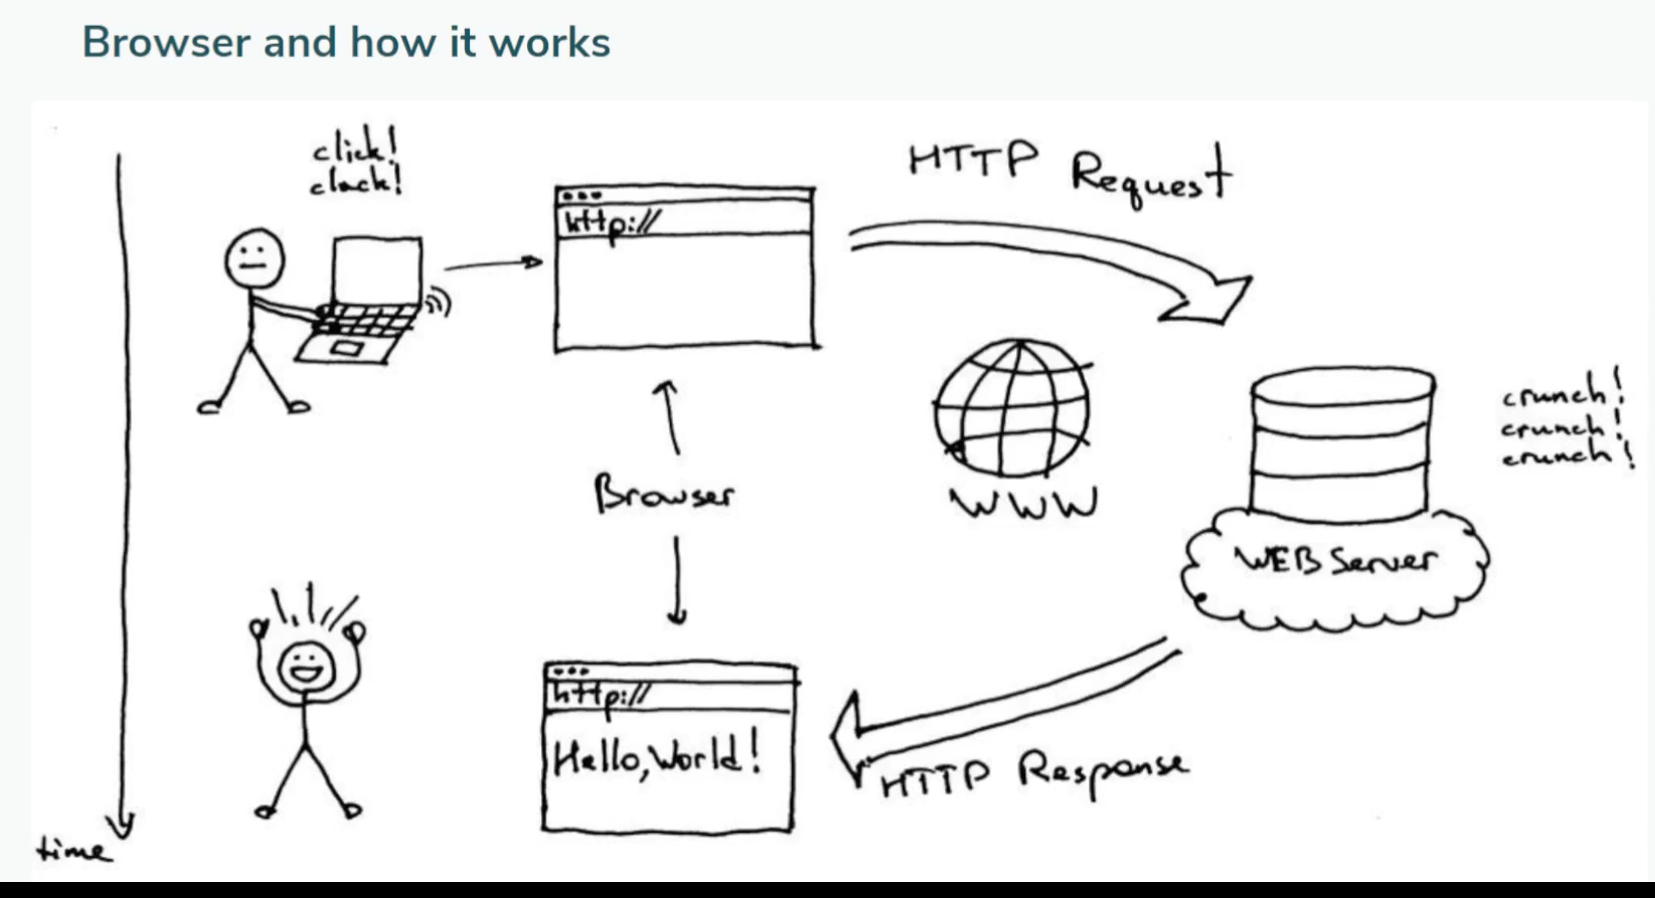 Browser and how it works
click!
clack!
HTTP Request
http://
crunch!
crunch!
crunch!
Browser
WWW
WEB Server
http://
Hello, World!
HTTP Response
time